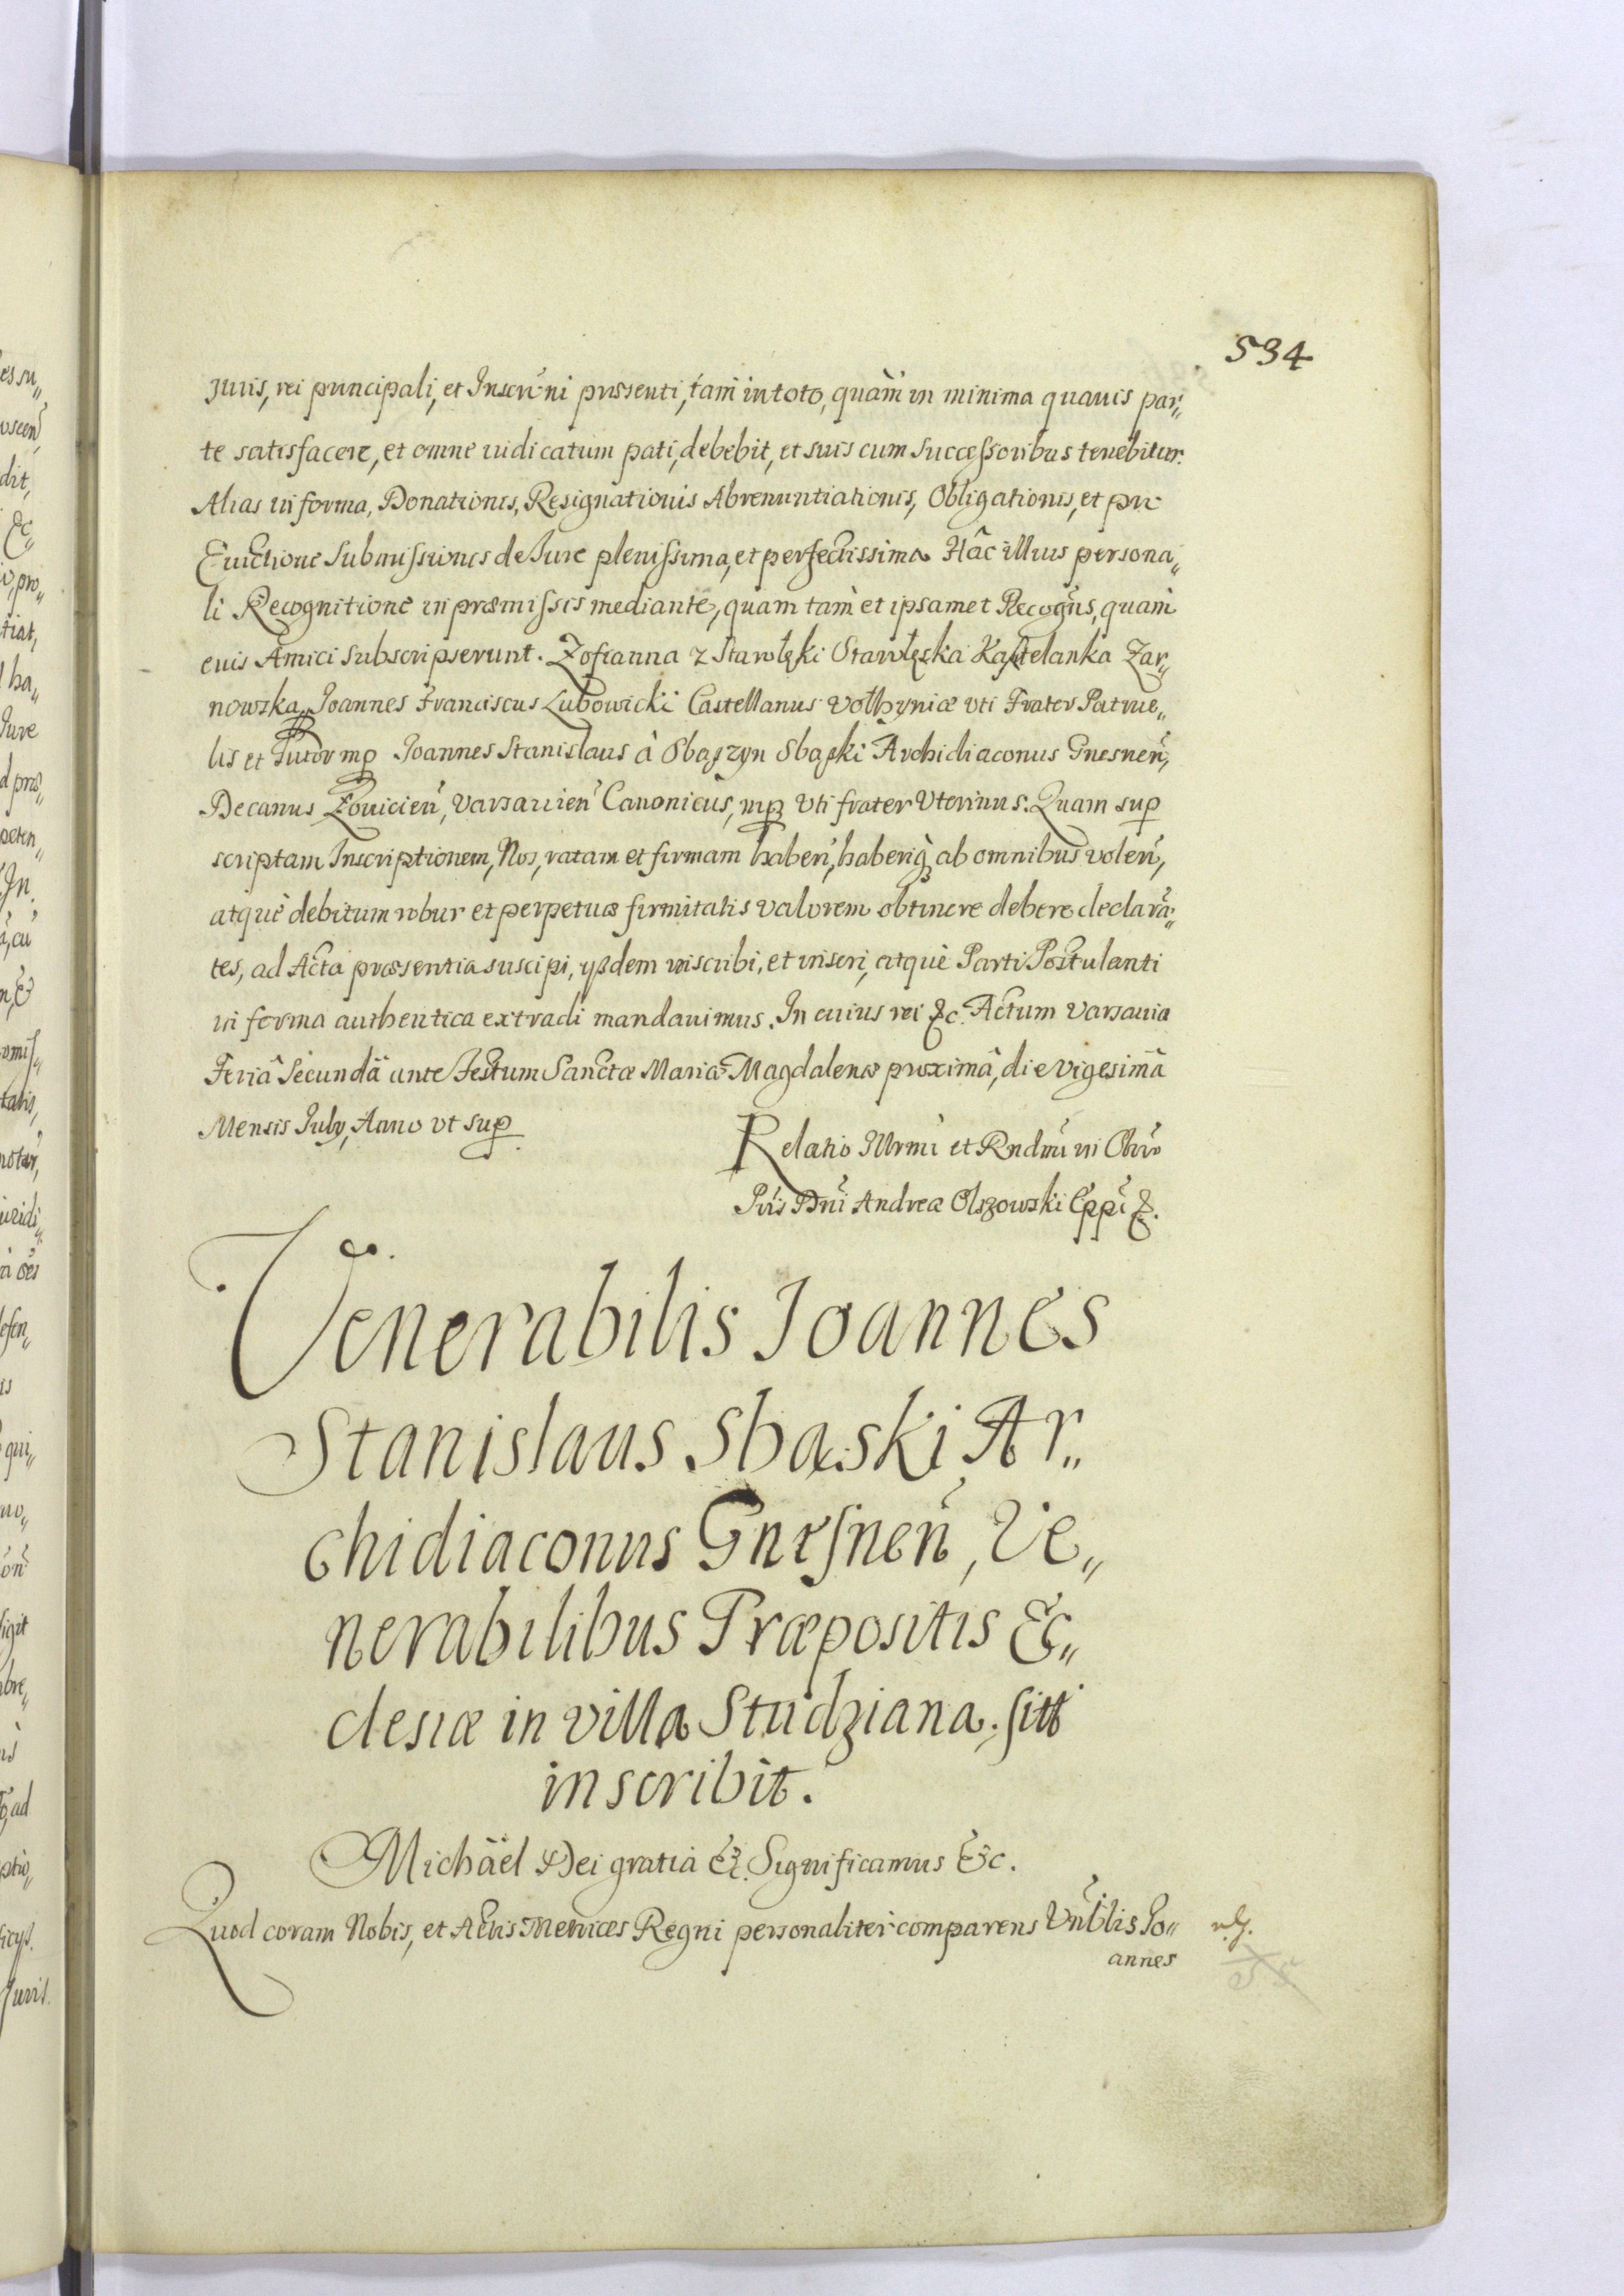 534
Juris, rei principali, et Inscrni prssenti, tam in toto, quàm in minima quauis par„
te satisfacere, et omne iudicatum pati, debebit, et suis cum Successoribus tenebitur.
Alias in forma, Donationis, Resignationis Abrenuntiationis, Obligationis, et pro
Euictione Submissionis de Iure plenissima, et perfectissima Hâc illius persona„
li Recognitione in præmissis mediante, quam tam et ipsamet Recogns, quam
euis Amici Subscripserunt. Zofianna z Stawlęki Stawlęska Kasztelanka Zar„
nowska, Joannes Franciscus Lubowicki Castellanus Volhyniæ vti Frater Patrue„
lis et Tutor mp Joannes Stanislaus à Sbaszyn Sbąski Archidiaconus Gnesnen,
Decanus Łouicien, Varsauien Canonicus, mp vti frater Vterinus. Quam sup
scriptam Inscriptionem, Nos, ratam et firmam haben, haberiq ab omnibus volen,
atquè debitum robur et perpetuæ firmitatis valorem obtinere debere declarā„
tes, ad Acta præsentia suscipi, ysdem inscribi, et inseri, atquè Parti Postulanti
in forma authentica extradi mandauimus. In cuius rei &c. Actum Varsauia
Feriâ Secundâ ante Festum Sanctæ Mariæ Magdalenæ proximâ, die vigesimâ
Mensis July, Anno vt sup
Relatio Illrmi et Rndmi in Chro
Pris Dni Andreæ Olszowski Eppi &.
Venerabilis Joannes
Stanislaus Sbąski Ar„
chidiaconus Gnesnen, Ve„
nerabilibus Præpositis Ec„
clesiæ in villa Studziana sitt
inscribit.
Michäel Dei gratia &. Significamus &c.
Quod coram Nobis, et Actis Metrices Regni personaliter comparens Vnblis Jo„
annes